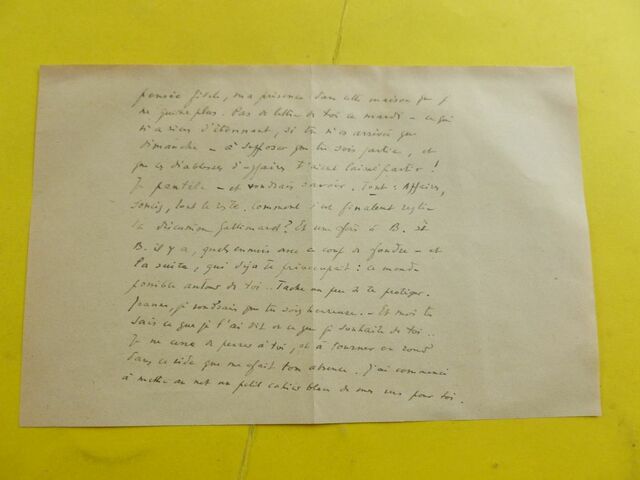 pensée fidèle, ma présence dans cette maison que j
ne quitte plus. Pas de lettre de toi ce mardi – ce qui
n'a rien d'étonnant, si tu n'es arrivée que
dimanche – à supposer que tu sois partie, et
que ces diablesses d'affaires t'aient laissé partir !
Je pantèle – et voudrais savoir. Tout : Affaires,
soucis, tout le reste. Comment s'est finalement
la discussion Gallimard ? Et une fois à B. St
B. il y a, quels ennuis avec ce coup de foudre – et
la suite, qui déjà te préoccupait : ce monde
possible autour de toi.. Tache un peu de te protéger.
Jeanne, je voudrais que tu sois heureuse. – Et moi tu
sais ce que je t'ai dit ce que je souhaite de toi..
Je ne cesse de penser à toi, et à tourner en rond
dans ce vide que me fait ton absence. J'ai commencé
à mettre au net un petit cahier blanc de mes vers pour toi.